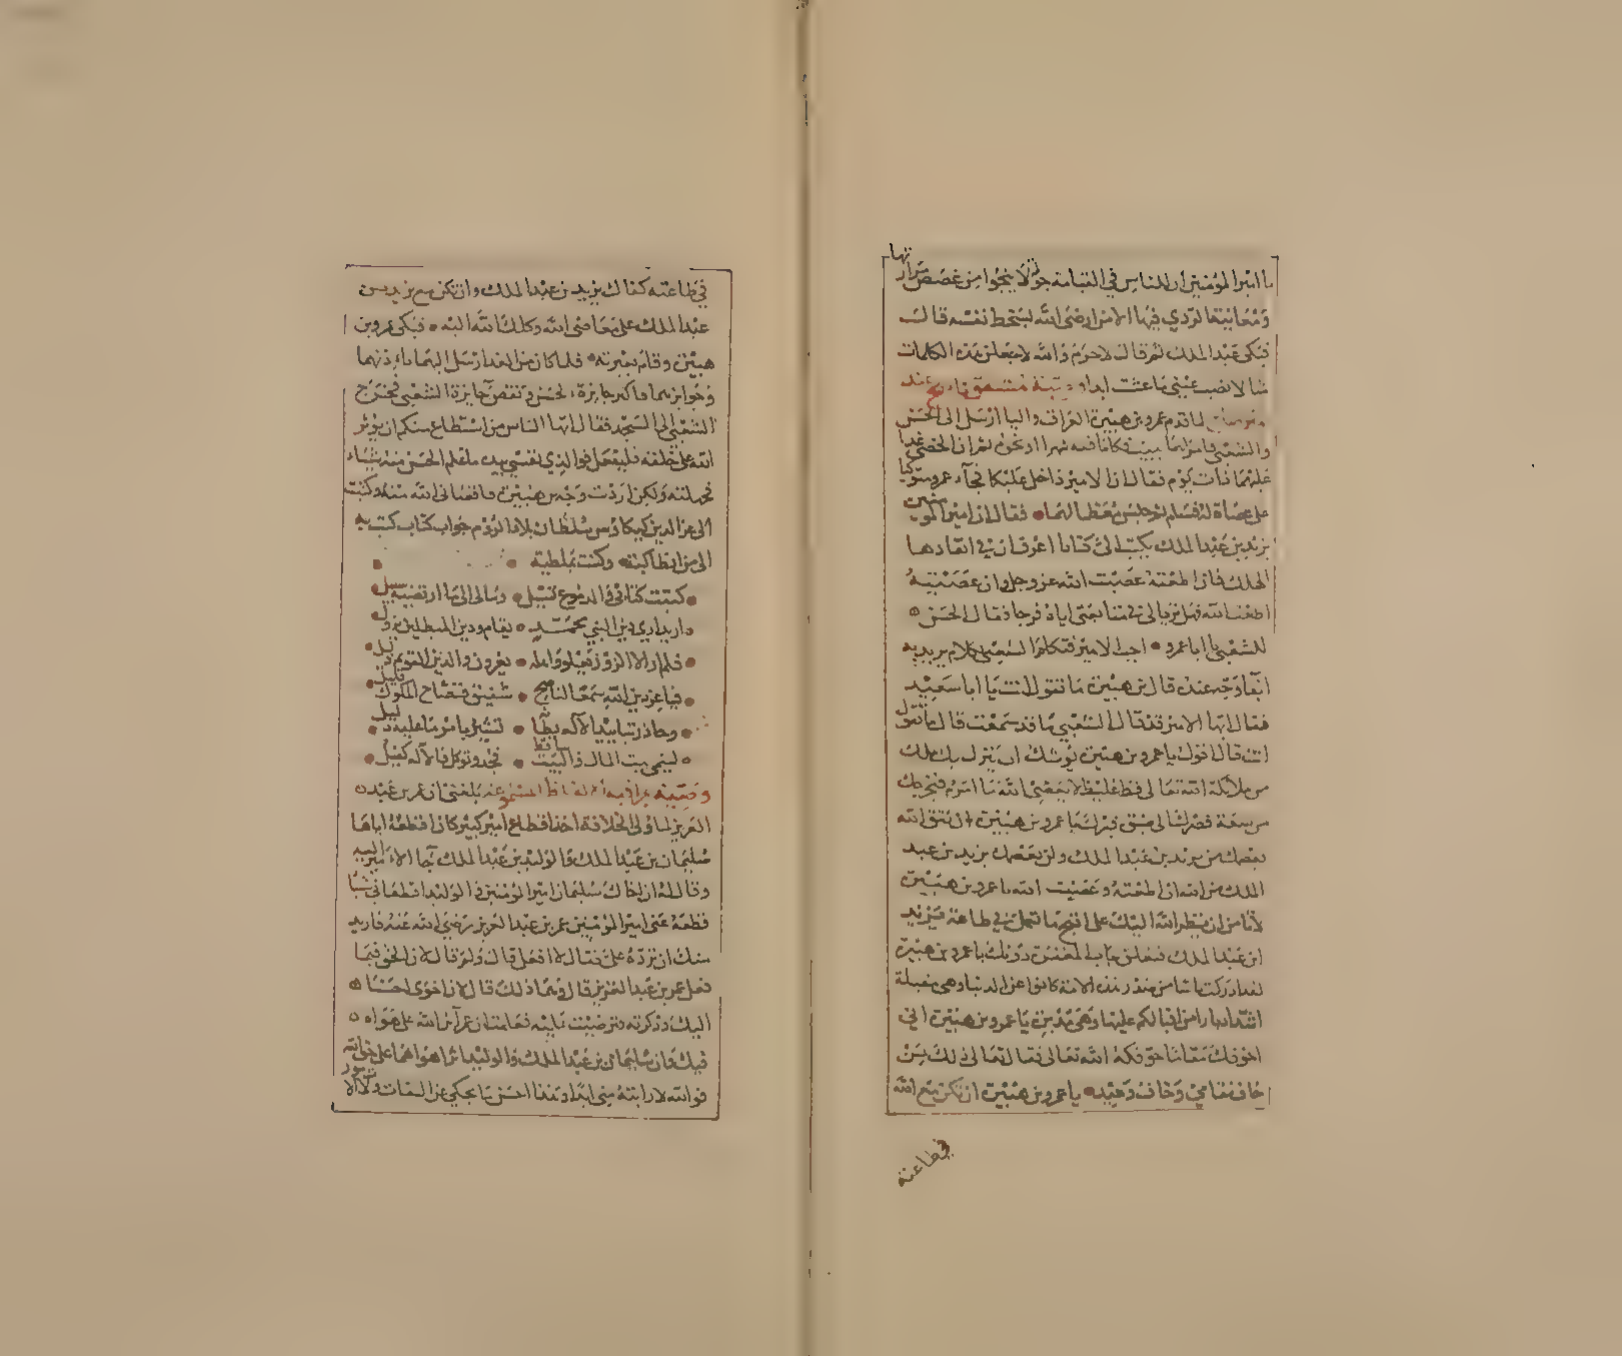 يا امير المؤمنين ان للناس في القيامة جولة لا ينجوا من غصص مرارتها
ومعاينة الردي فيها الا من ارضى الله بسخط نفسه قال
فبكى عبد الملك ثم قال لا جرم والله لاجعلن هذه الكلمات
مثالا نصب عيني ما عشت ابدا
لما قدم عمرو بن هبيرة العراق واليا ارسل الى الحسن
والشعبي فامر لهما ببيت فكانا فيه شهرا او نحوه ثم ان الخصي غدا
عليهما ذات يوم فقال ان الامير داخل عليكما فجاء عمرو متوكيا
على عصاة له فسلم ثم جلس معظما لهما فقال ان امير المومنين
يزيد بن عبد الملك يكتب الي كتابا اعرف ان في انفاذها
الهلك فان اطعته عصيت الله عز وجل وان عصيته
اطعت الله فهل تريا لي في متابعتي اياه فرجا فقال الحسن
للشعبي يا ابا عمرو اجب الامير فتكلم الشعبي بكلام يريد به
ابقا وجه عنده قال بن هبيرة ما تقول انت يا ابا سعيد
فقال ايها الامير قد قال الشعبي ما قد سمعت قال ما تقول
انت قال اقول يا عمرو بن هبيرة يوشك ان ينزل بك ملك
من ملائكة الله تعالى فظ غليظ لا يعصي الله ما امره فيخرجك
من سعة قصرك الى ضيق قبرك يا عمرو بن هبيرة ان تتق الله
يعصمك من يزيد بن عبد الملك ولن يعصمك يزيد بن عبد
الملك من الله ان اطعته وعصيت الله يا عمرو بن هبيرة
لا تامن ان ينظر الله اليك على اقبح ما تعمل في طاعة يزيد
ابن عبد الملك فيغلق باب المغفرة دونك يا عمرو بن هبيرة
لقد ادركت ناسا من صدر هذه الامة كانوا عن الدنيا وهي مقبلة
اشد ادبارا من اقبالكم عليها وهي مدبرة يا عمرو بن هبيرة اني
اخوفك مقاما خوفكه الله تعالى فقال تعالى ذلك لمن
خاف مقامي وخاف وعيد يا عمرو بن هبيرة ان تكن مع الله
في طاعته
في طاعته كفاك يزيد بن عبد الملك وان تكن مع يزيد بن
عبد الملك على معاصي الله وكلك الله اليه فبكى عمرو بن
هبيرة وقام بعبرته فلما كان من الغد ارسل اليهما باذنهما
وجوايزهما فاكثر جايزة الحسن ونقص جايزة الشعبي فخرج
الشعبي الى المسجد فقال ايها الناس من استطاع منكم ان يؤثر
الله على خلقه فليفعل فوالذي نفسي بيده ما علم الحسن منه شياء
فجهلته ولكن اردت وجه بن هبيرة فاقصاني الله منه وكتبت
الى عز الدين كيكاوس سلطان بلاد الروم جواب كتاب كتب به
الي من انطاكية وكنت بملطية
كتبت كتابي والدموع تسيل ومالي الى ما ارتضيه سبيل
اريد اري دين النبي محمد يقام ودين المبطلين يزول
فلم ار الا الزور يعلو واهله يعزون والدين القويم ذليل
فيا عز دين الله سمعا لناصح شفيق فنصاح الملوك قليل
وحاذر بتاييد الاله بطانة تشير بامر ما عليه دليل
لينمي بيت المال والبيت ساقط فجد وتوكل فالاله كفيل
بلغني ان عمر بن عبد
العزيز لما ولي الخلافة اخذ اقطاع امير كبير كان اقطعه اياها
سليمان بن عبد الملك والوليد بن عبد الملك فجا الامير اليه
وقال له ان اخاك سليمان امير المؤمنين والوليد اقطعاني شيا
قطعه عني امير المؤمنين عمر بن عبد العزيز رضي الله عنه فاريد
منك ان ترده علي فقال لا افعل قال ولم قال لان الحق فيما
فعل عمر بن عبد العزيز قال وبما ذلك قال لان اخوي احسنا
اليك وذكرته وترضيت عليه فعلمت ان عمر آثر الله على هواه
فيك وان سليمان بن عبد الملك والوليد اثرا هواهما على حق الله
فوالله لا رايته مني ابدا وهذا احسن ما يحكى عن